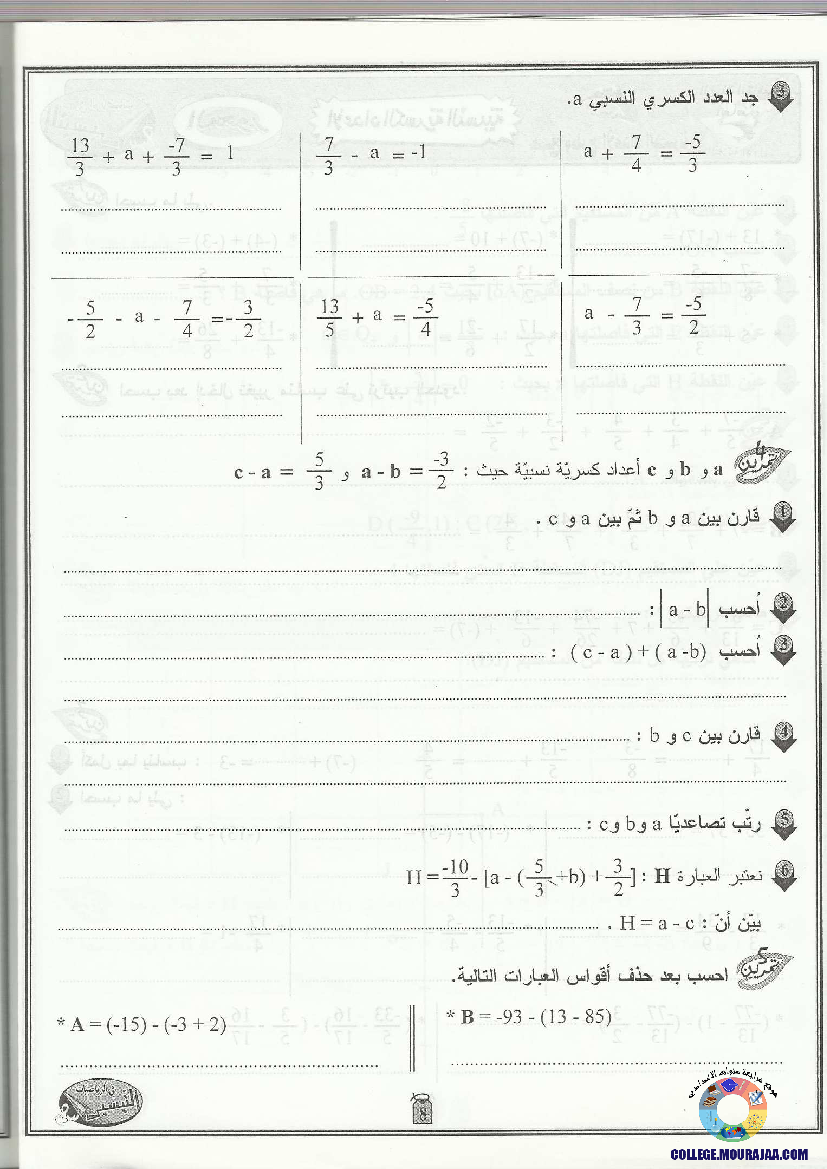 3 جد العدد الكسري النسبي a.
a + 7/4 = -5/3
7/3 - a = -1
13/3 + a + -7/3 = 1
a - 7/3 = -5/2
13/5 + a = -5/4
-5/2 - a - 7/4 = -3/2
تمرين 4 a و b و c أعداد كسريّة نسبيّة حيث : a - b = -3/2 و c - a = 5/3
1 قارن بين a و b ثمّ بين a و c .
2 أحسب |a - b| :
3 أحسب (c - a) + (a - b) :
4 قارن بين c و b :
5 رتّب تصاعديّا a و b و c :
6 نعتبر العبارة H : H = -10/3 - [a - (5/3 + b) + 3/2]
بيّن أنّ : H = a - c .
تمرين 5 احسب بعد حذف أقواس العبارات التالية.
* B = -93 - (13 - 85)
* A = (-15) - (-3 + 2)
8
COLLEGE.MOURAJAA.COM